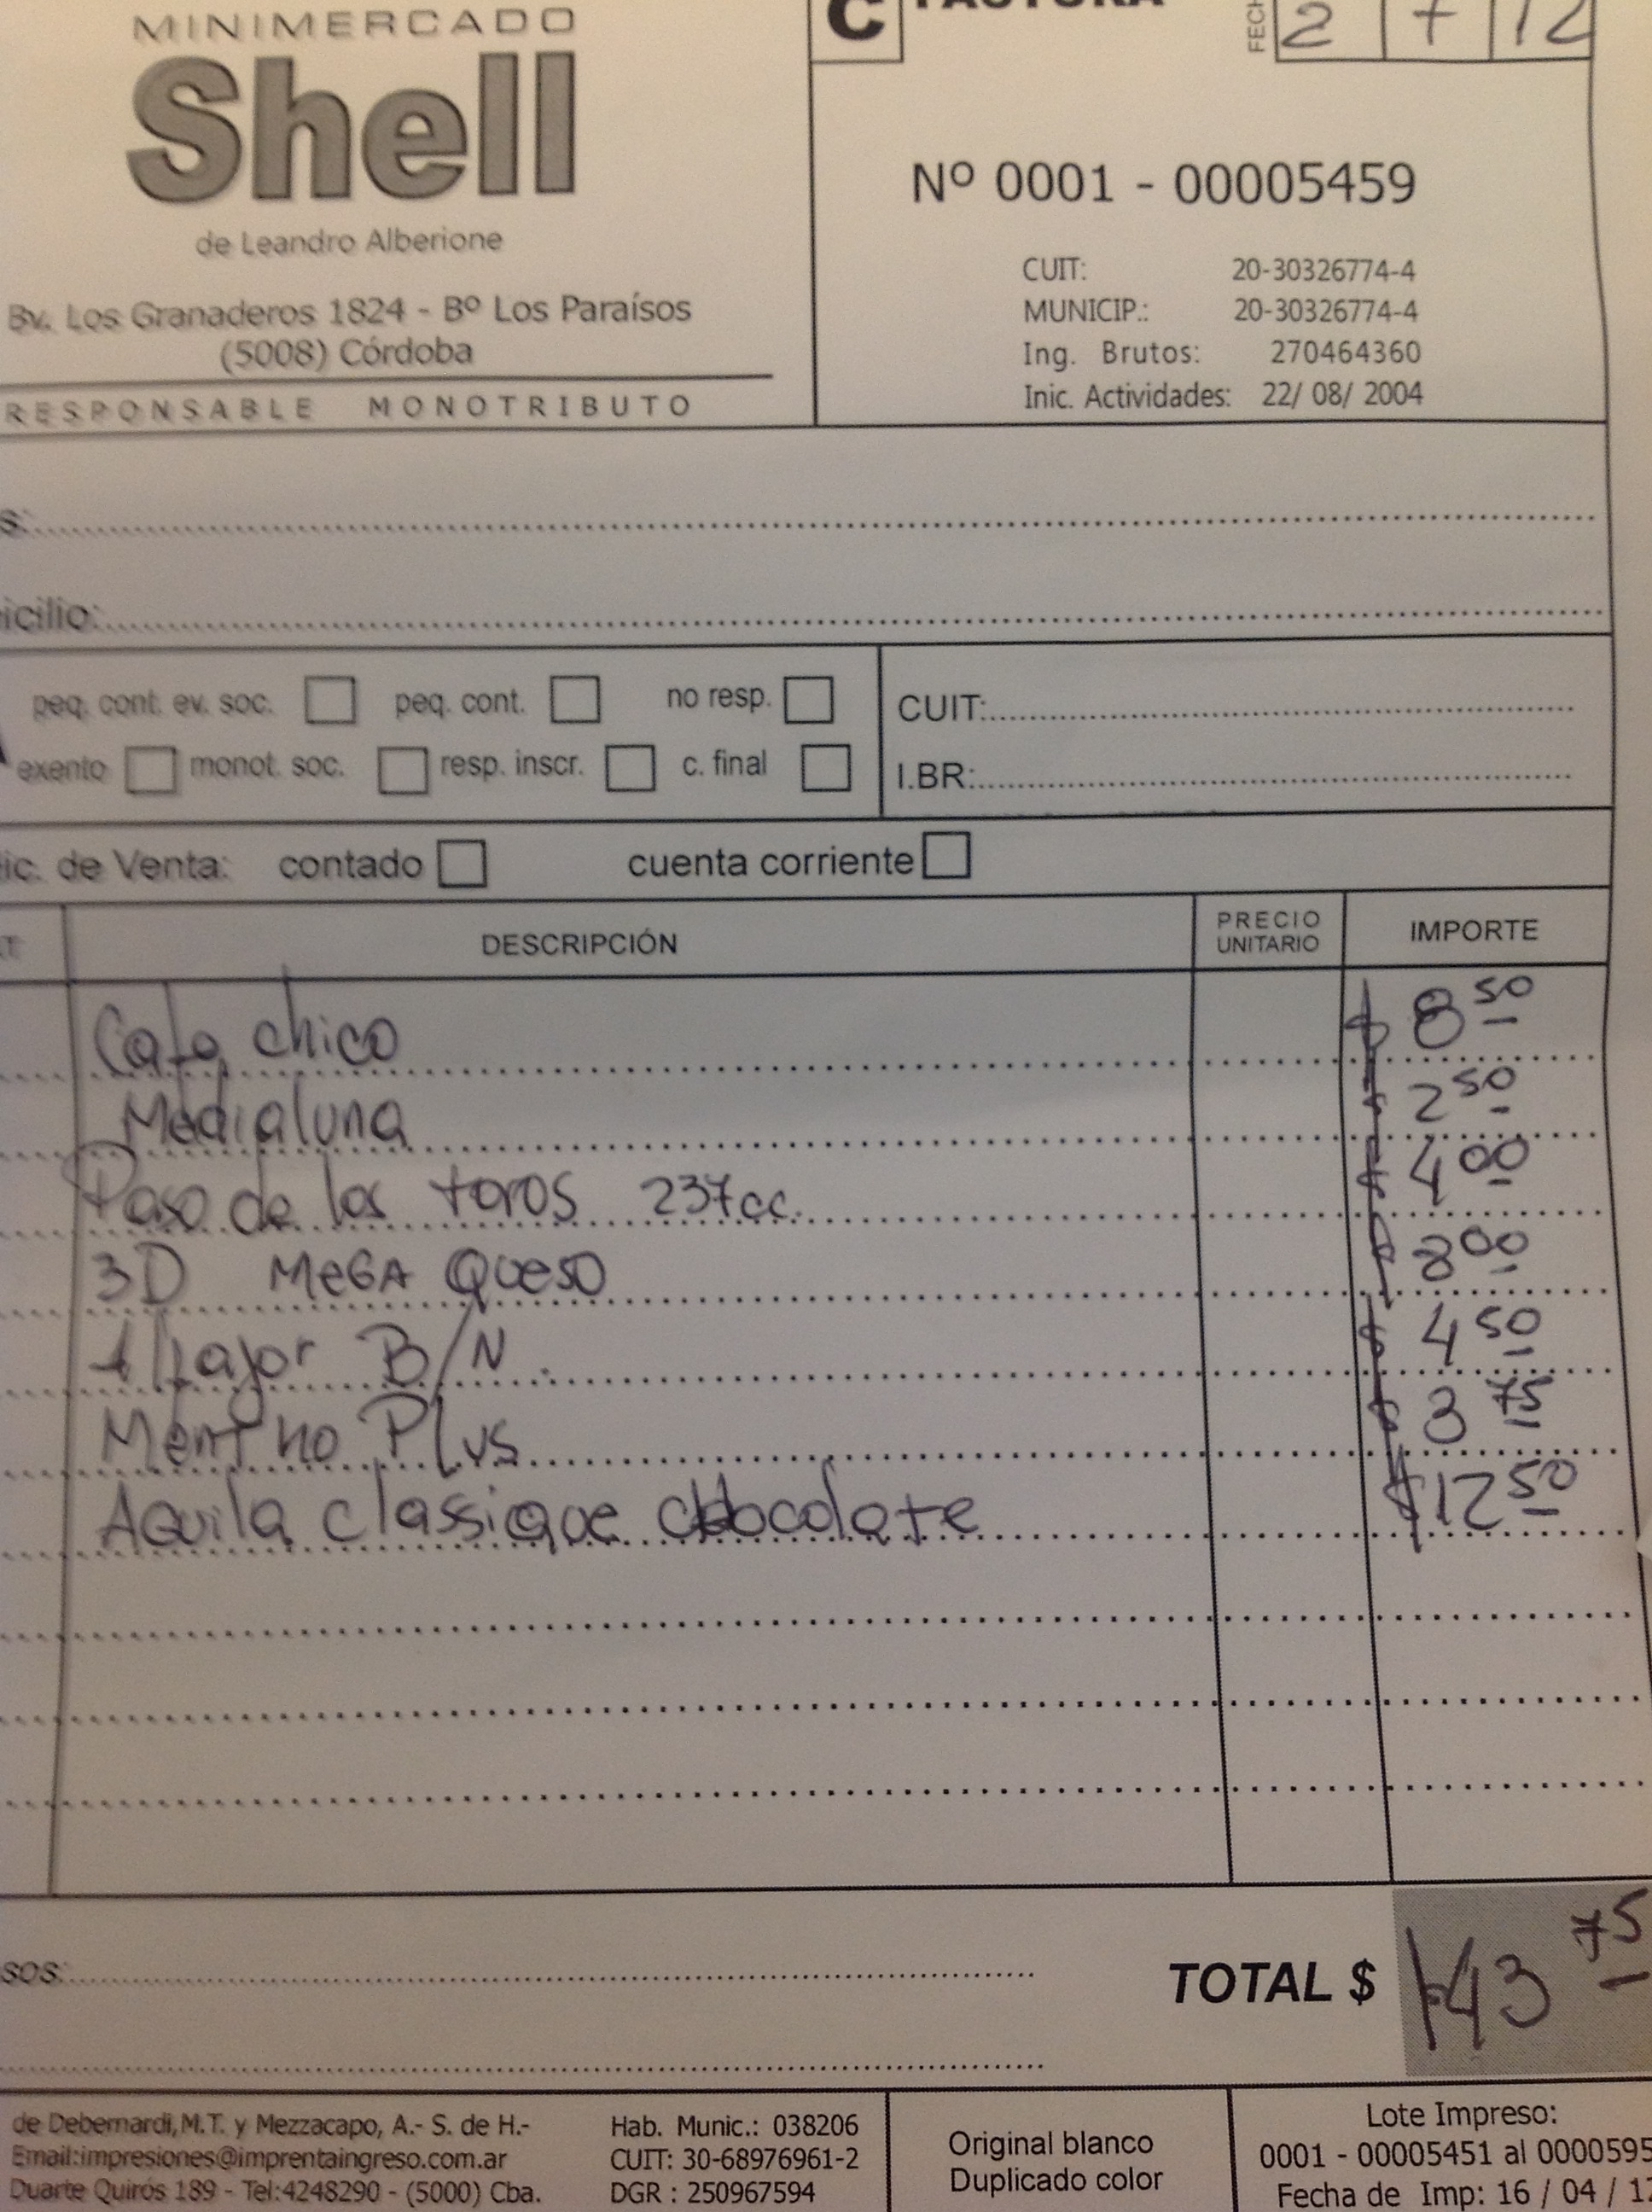 MINIMERCADO
Shell
de Leandro Alberione
Bv. Los Granaderos 1824 - Bº Los Paraísos
(5008) Córdoba
RESPONSABLE MONOTRIBUTO
C FACTURA
2 7 12
Nº 0001 - 00005459
CUIT: 20-30326774-4
MUNICIP.: 20-30326774-4
Ing. Brutos: 270464360
Inic. Actividades: 22/ 08/ 2004
peq. cont. ev. soc. peq. cont. no resp.
exento monot. soc. resp. inscr. c. final
CUIT:
I.BR:
de Venta: contado cuenta corriente
DESCRIPCIÓN PRECIO UNITARIO IMPORTE
Cafe chico $ 8 50
Medialuna $ 2 50
Paso de los toros 237cc. $ 4 00
3D MeGA Queso $ 8 00
Alfajor B/N. $ 4 50
Mentho Plus $ 3 75
Aquila classique chocolate $ 12 50
TOTAL $ $43 75
de Debernardi,M.T. y Mezzacapo, A.- S. de H.-
Email:impresiones@imprentaingreso.com.ar
Duarte Quirós 189 - Tel:4248290 - (5000) Cba.
Hab. Munic.: 038206
CUIT: 30-68976961-2
DGR : 250967594
Original blanco
Duplicado color
Lote Impreso:
0001 - 00005451 al 0000595
Fecha de Imp: 16 / 04 / 1